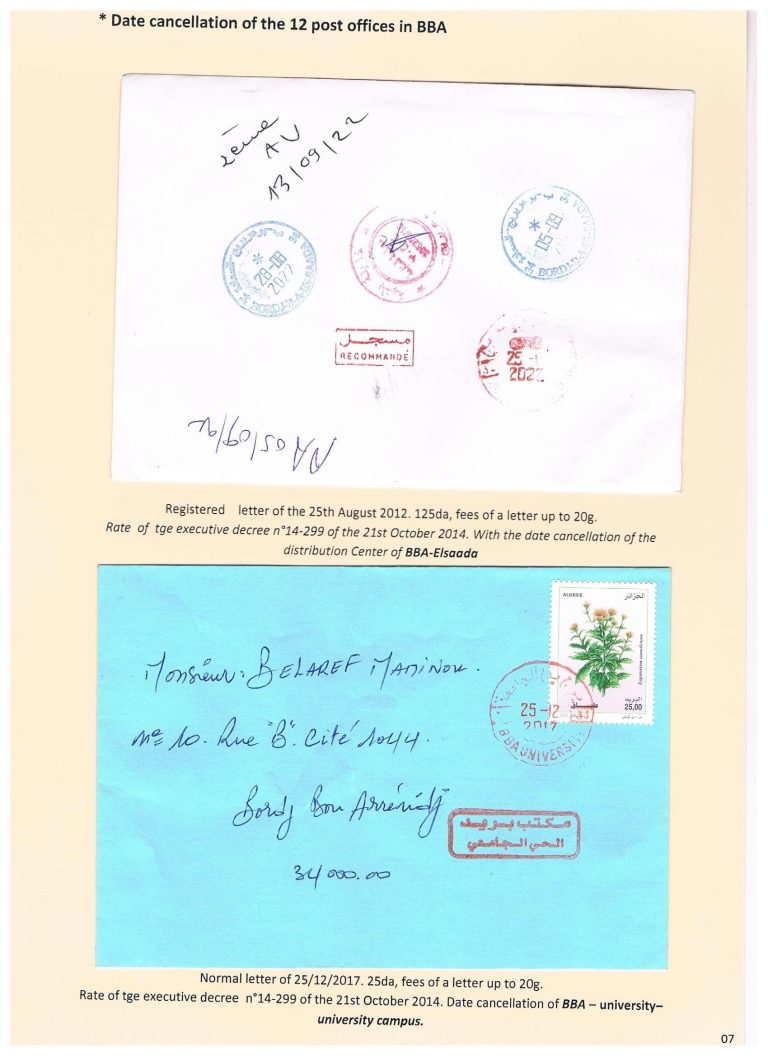 * Date cancellation of the 12 post offices in BBA
2ème
AV
13/09/22
28-08
2022
05-09
مسجل
RECOMMANDÉ
25
2022
AA 05/09/22
Registered letter of the 25th August 2012. 125da, fees of a letter up to 20g.
Rate of tge executive decree n°14-299 of the 21st October 2014. With the date cancellation of the
distribution Center of BBA-Elsaada
ALGERIE
الجزائر
البريد
25,00
25-12
2017
BBA UNIVERSI
Monsieur: BELAREF MAMINOU.
N° 10. Rue "B". Cité 1044.
Bordj Bou Arréridj
34000.00
مكتب بريد
الحي الجامعي
Normal letter of 25/12/2017. 25da, fees of a letter up to 20g.
Rate of tge executive decree n°14-299 of the 21st October 2014. Date cancellation of BBA – university–
university campus.
07